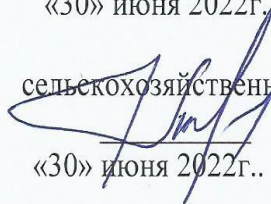 «30» июня 2022г.
сельскохозяйствен
«30» июня 2022г..